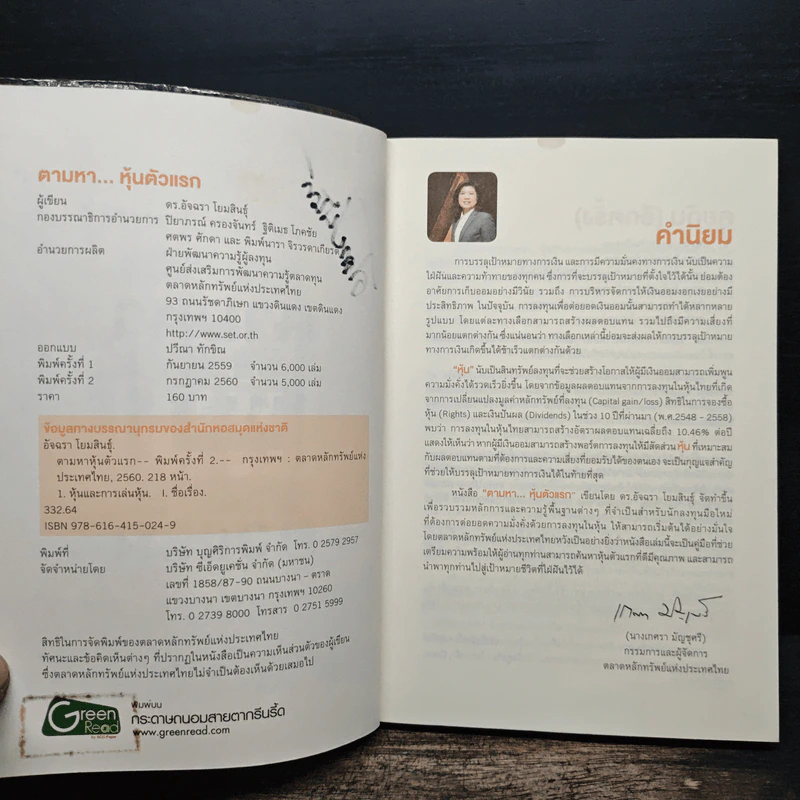 ตามหา... หุ้นตัวแรก
ผู้เขียน ดร.อัจฉรา โยมสินธุ์
กองบรรณาธิการอำนวยการ ปิยาภรณ์ ครองจันทร์ ฐิติเมธ โภคชัย
ศตพร ศักดา และ พิมพ์นารา จิรวรดาเกียรติ
อำนวยการผลิต ฝ่ายพัฒนาความรู้ผู้ลงทุน
ศูนย์ส่งเสริมการพัฒนาความรู้ตลาดทุน
ตลาดหลักทรัพย์แห่งประเทศไทย
93 ถนนรัชดาภิเษก แขวงดินแดง เขตดินแดง
กรุงเทพฯ 10400
http://www.set.or.th
ออกแบบ ปวีณา ทักขิณ
พิมพ์ครั้งที่ 1 กันยายน 2559 จำนวน 6,000 เล่ม
พิมพ์ครั้งที่ 2 กรกฎาคม 2560 จำนวน 5,000 เล่ม
ราคา 160 บาท
ข้อมูลทางบรรณานุกรมของสำนักหอสมุดแห่งชาติ
อัจฉรา โยมสินธุ์.
ตามหาหุ้นตัวแรก-- พิมพ์ครั้งที่ 2.-- กรุงเทพฯ : ตลาดหลักทรัพย์แห่ง
ประเทศไทย, 2560. 218 หน้า.
1. หุ้นและการเล่นหุ้น. I. ชื่อเรื่อง.
332.64
ISBN 978-616-415-024-9
พิมพ์ที่ บริษัท บุญศิริการพิมพ์ จำกัด โทร. 0 2579 2957
จัดจำหน่ายโดย บริษัท ซีเอ็ดยูเคชั่น จำกัด (มหาชน)
เลขที่ 1858/87-90 ถนนบางนา - ตราด
แขวงบางนา เขตบางนา กรุงเทพฯ 10260
โทร. 0 2739 8000 โทรสาร 0 2751 5999
สิทธิในการจัดพิมพ์ของตลาดหลักทรัพย์แห่งประเทศไทย
ทัศนะและข้อคิดเห็นต่างๆ ที่ปรากฏในหนังสือเป็นความเห็นส่วนตัวของผู้เขียน
ซึ่งตลาดหลักทรัพย์แห่งประเทศไทยไม่จำเป็นต้องเห็นด้วยเสมอไป
Green Read
พิมพ์บน
กระดาษถนอมสายตากรีนรี้ด
www.greenread.com
คำนิยม
การบรรลุเป้าหมายทางการเงิน และการมีความมั่นคงทางการเงิน นับเป็นความ
ใฝ่ฝันและความท้าทายของทุกคน ซึ่งการที่จะบรรลุเป้าหมายที่ตั้งใจไว้ได้นั้น ย่อมต้อง
อาศัยการเก็บออมอย่างมีวินัย รวมถึง การบริหารจัดการให้เงินออมงอกเงยอย่างมี
ประสิทธิภาพ ในปัจจุบัน การลงทุนเพื่อต่อยอดเงินออมนั้นสามารถทำได้หลากหลาย
รูปแบบ โดยแต่ละทางเลือกสามารถสร้างผลตอบแทน รวมไปถึงมีความเสี่ยงที่
มากน้อยแตกต่างกัน ซึ่งแน่นอนว่า ทางเลือกเหล่านี้ย่อมจะส่งผลให้การบรรลุเป้าหมาย
ทางการเงินเกิดขึ้นได้ช้าเร็วแตกต่างกันด้วย
"หุ้น" นับเป็นสินทรัพย์ลงทุนที่จะช่วยสร้างโอกาสให้ผู้มีเงินออมสามารถเพิ่มพูน
ความมั่งคั่งได้รวดเร็วยิ่งขึ้น โดยจากข้อมูลผลตอบแทนจากการลงทุนในหุ้นไทยที่เกิด
จากการเปลี่ยนแปลงมูลค่าหลักทรัพย์ที่ลงทุน (Capital gain/loss) สิทธิในการจองซื้อ
หุ้น (Rights) และเงินปันผล (Dividends) ในช่วง 10 ปีที่ผ่านมา (พ.ศ.2548 - 2558)
พบว่า การลงทุนในหุ้นไทยสามารถสร้างอัตราผลตอบแทนเฉลี่ยถึง 10.46% ต่อปี
แสดงให้เห็นว่า หากผู้มีเงินออมสามารถสร้างพอร์ตการลงทุนให้มีสัดส่วน หุ้น ที่เหมาะสม
กับผลตอบแทนตามที่ต้องการและความเสี่ยงที่ยอมรับได้ของตนเอง จะเป็นกุญแจสำคัญ
ที่ช่วยให้บรรลุเป้าหมายทางการเงินได้ในท้ายที่สุด
หนังสือ "ตามหา... หุ้นตัวแรก" เขียนโดย ดร.อัจฉรา โยมสินธุ์ จัดทำขึ้น
เพื่อรวบรวมหลักการและความรู้พื้นฐานต่างๆ ที่จำเป็นสำหรับนักลงทุนมือใหม่
ที่ต้องการต่อยอดความมั่งคั่งด้วยการลงทุนในหุ้น ให้สามารถเริ่มต้นได้อย่างมั่นใจ
โดยตลาดหลักทรัพย์แห่งประเทศไทยหวังเป็นอย่างยิ่งว่าหนังสือเล่มนี้จะเป็นคู่มือที่ช่วย
เตรียมความพร้อมให้ผู้อ่านทุกท่านสามารถค้นหาหุ้นตัวแรกที่ดีมีคุณภาพ และสามารถ
นำพาทุกท่านไปสู่เป้าหมายชีวิตที่ใฝ่ฝันไว้ได้
(นางเกศรา มัญชุศรี)
กรรมการและผู้จัดการ
ตลาดหลักทรัพย์แห่งประเทศไทย